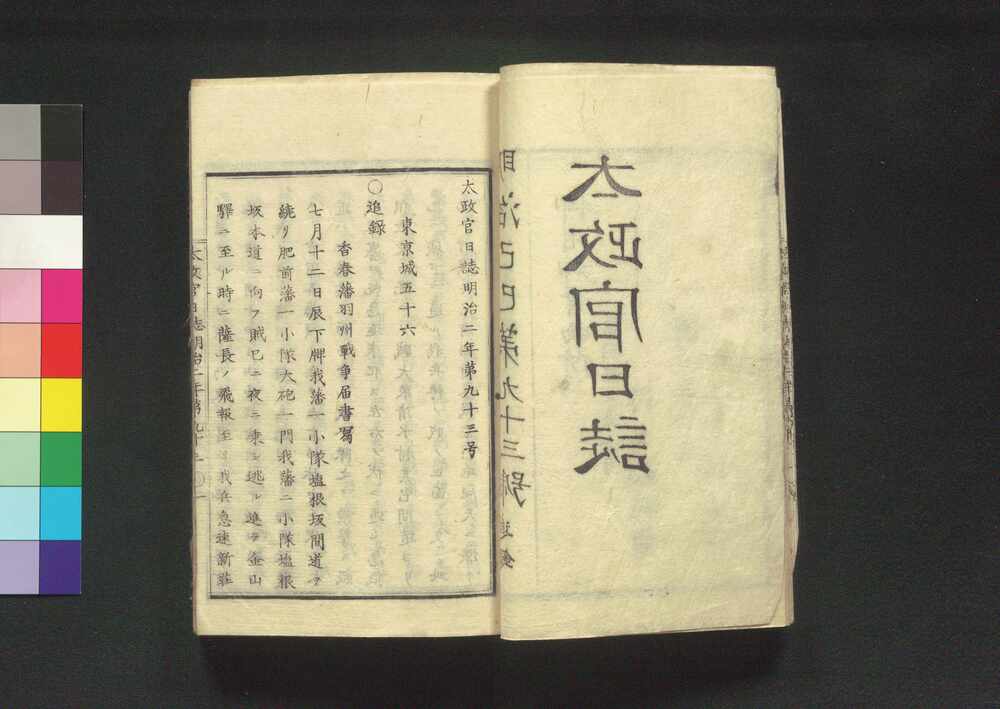 太政官日誌
明治己巳第九十三號
太政官日誌明治二年第九十三号
東京城五十六
〇追録
香春藩羽州戦争届書寫
七月十二日辰下牌我藩一小隊塩根坂間道ヲ
繞リ肥前藩一小隊大砲一門我藩二小隊塩根
坂本道ニ向フ賊已ニ夜ニ乗シ逃ル進テ金山
驛ニ至ル時ニ薩長ノ飛報至リ我兵急速新莊
太政官日誌明治二年第九十三